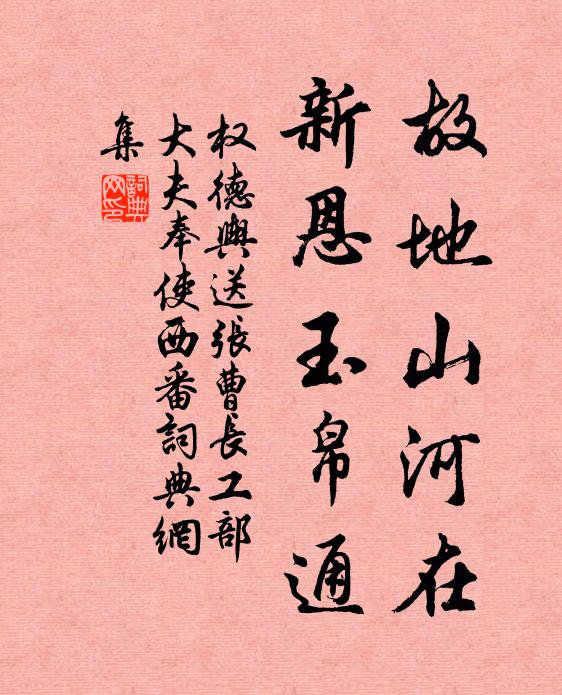 故地山河在
新恩玉帛通
权德舆送张曹长工部
大夫奉使西番詞典網
集
詞典
网印